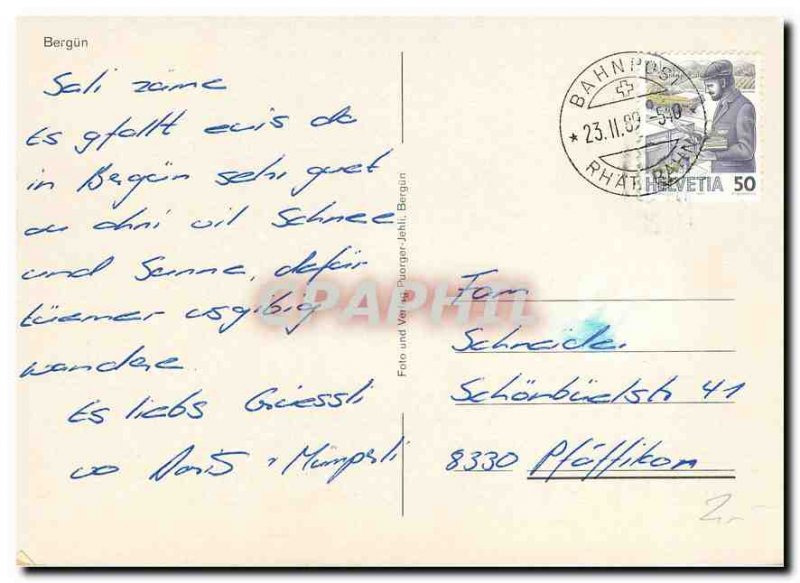 Bergün
Sali zäme
Es gfallt euis da
in Bergün sehr guet
au ohni vil Schnee
und Sunne, dafür
tüemer usgibig
wandere.
Es liebs Grüessli
vo Doris
Foto und Verlag Puorger-Jehli, Bergün
BAHNPOST
23.II.89 -510
RHÄT. BAHN
HELVETIA 50
Fam
Schneider
Schönbüelstr 41
8330 Pfäffikon
2.-
CPAPHIL